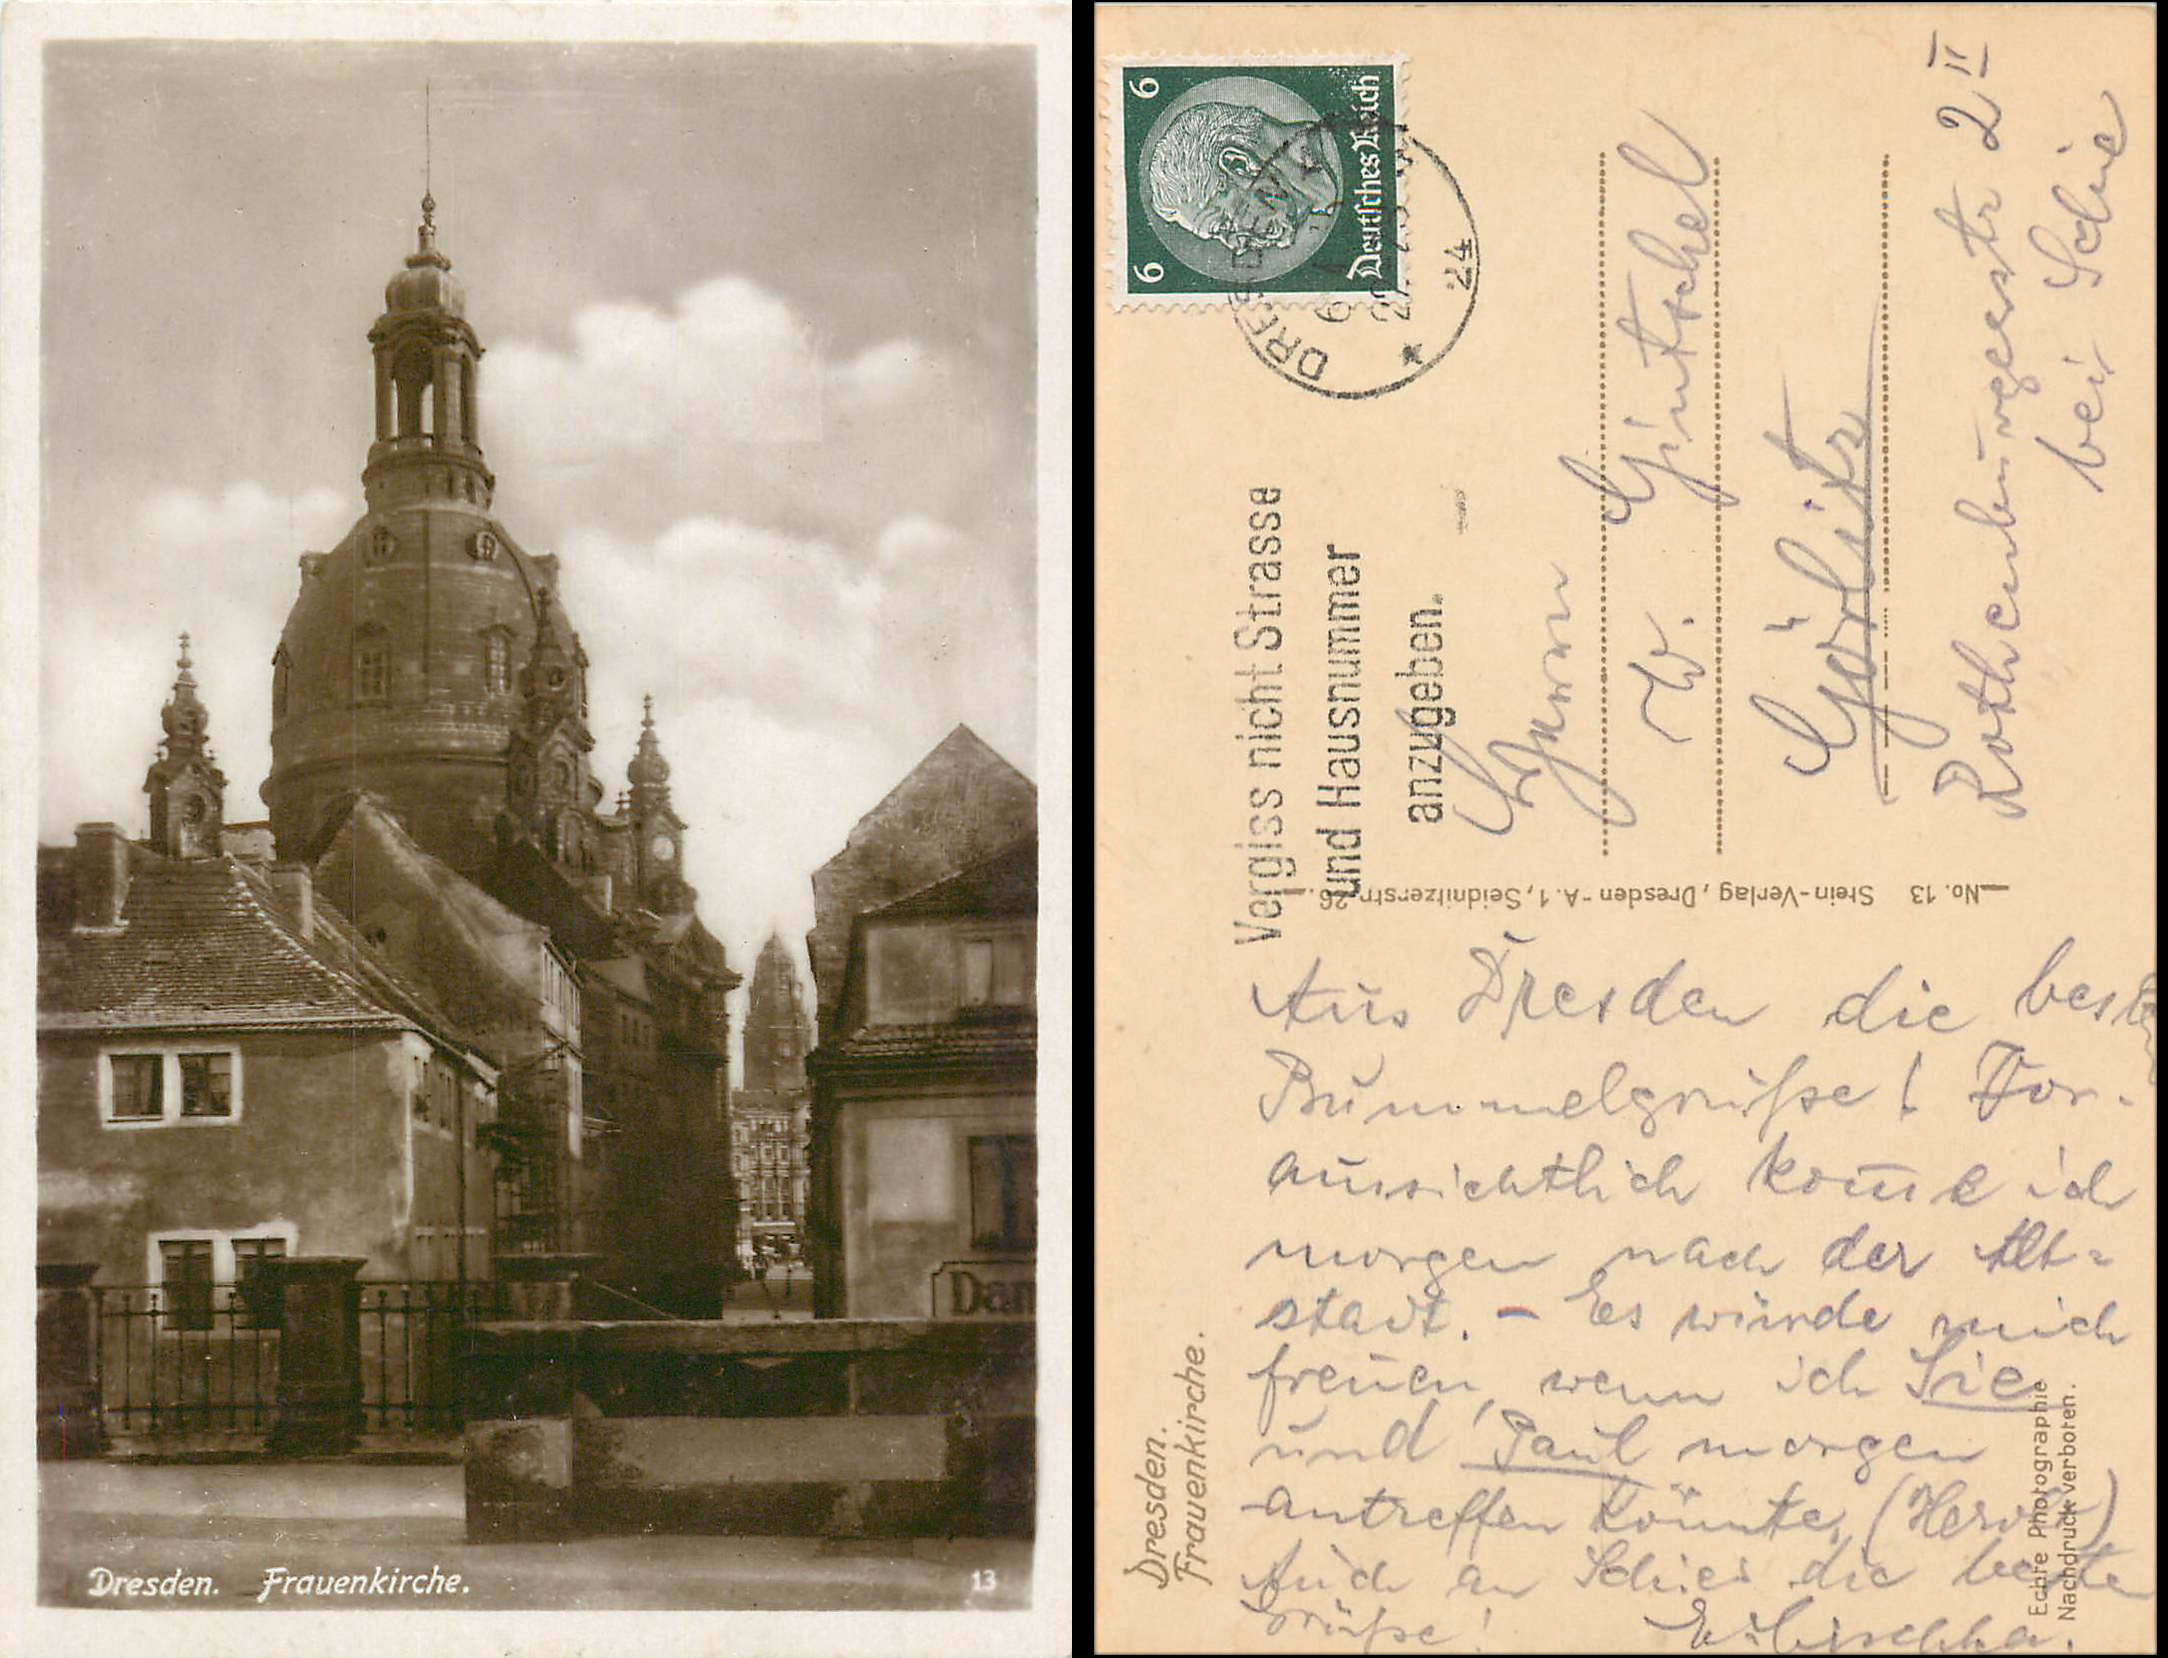 Dresden. Frauenkirche.
13
Dan
6 6
Deutsches Reich
DRESDEN A
24
Vergiss nicht Strasse
und Hausnummer
anzugeben.
W. Gintschel
Görlitz
Rothenburgerstr 2 II
bei Schie
No. 13 Stein-Verlag, Dresden-A. 1, Seidnitzerstr. 26.
Dresden.
Frauenkirche.
Aus Dresden die besten
Bummelgrüße! Vor-
aussichtlich kom̄e ich
morgen nach der Alt-
stadt. – Es würde mich
freuen, wenn ich Sie
und Paul morgen
antreffen könnte.
Auch an Schies die beste
Grüße!
Echte Photographie
Nachdruck verboten.